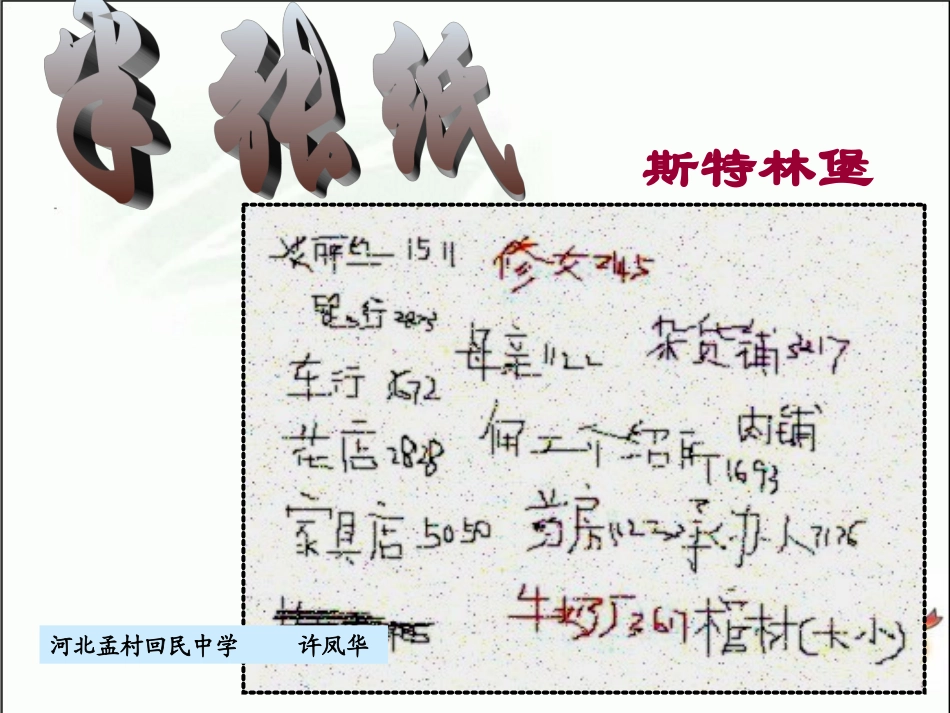 半张纸
斯特林堡
艾丽丝 1511
修女2145
银行2823
母亲1122
杂货铺3217
车行 8672
花店2828
佣工介绍所
肉铺
1693
家具店 5050
药房
承办人7176
牛奶厂2617
棺材(大小)
河北孟村回民中学 许凤华